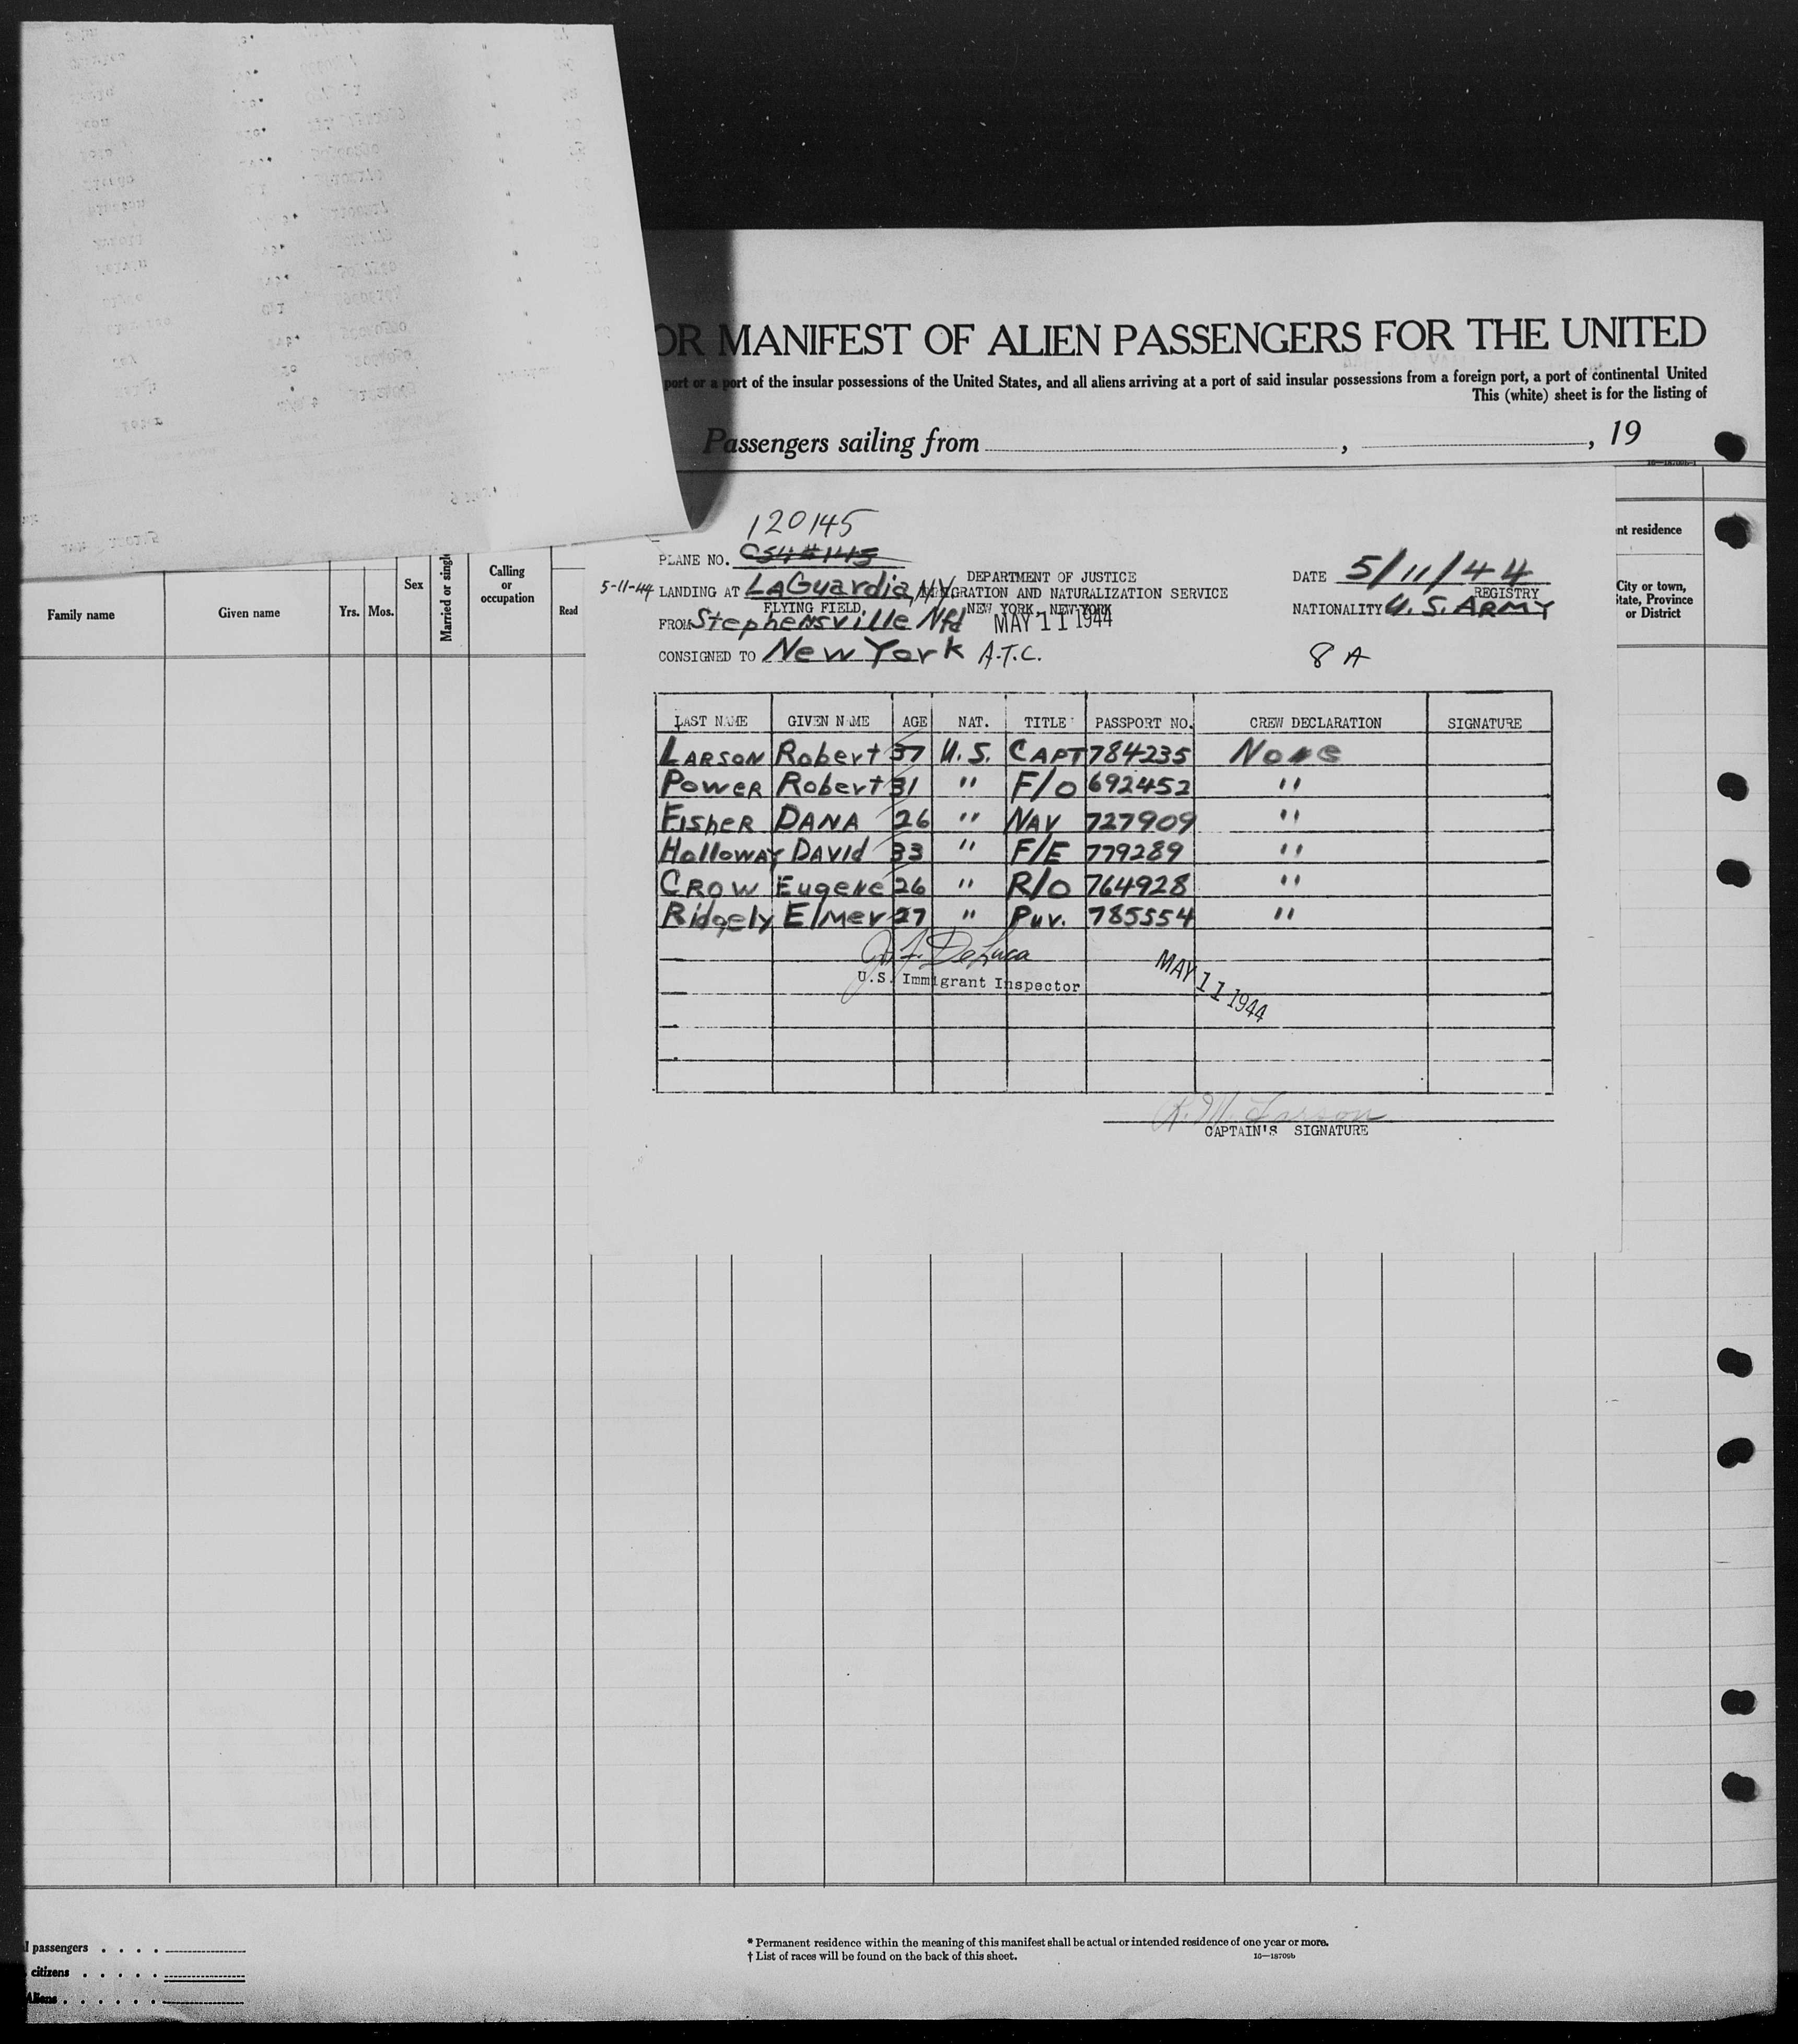 OR MANIFEST OF ALIEN PASSENGERS FOR THE UNITED
port or a port of the insular possessions of the United States, and all aliens arriving at a port of said insular possessions from a foreign port, a port of continental United
This (white) sheet is for the listing of
Passengers sailing from , , 19
120145
PLANE NO. C54#145
DEPARTMENT OF JUSTICE
DATE 5/11/44
5-11-44 LANDING AT LaGuardia, NY
IMMIGRATION AND NATURALIZATION SERVICE
REGISTRY
FLYING FIELD,
NEW YORK, NEW YORK
NATIONALITY U.S. ARMY
FROM Stephensville Nfd
MAY 11 1944
CONSIGNED TO New York A.T.C.
8 A
LAST NAME GIVEN NAME AGE NAT. TITLE PASSPORT NO. CREW DECLARATION SIGNATURE
LARSON Robert 37 U.S. CAPT 784235 None
POWER Robert 31 " F/O 692452 "
FISHER DANA 26 " NAV 727909 "
Holloway DAVID 33 " F/E 779289 "
CROW Eugene 26 " R/O 764928 "
Ridgely Elmer 27 " Pur. 785554 "
J. F. DeLuca
U.S. Immigrant Inspector
MAY 11 1944
R. M. Larson
CAPTAIN'S SIGNATURE
Family name
Given name
Yrs.
Mos.
Sex
Married or single
Calling
or
occupation
Read
nt residence
City or town,
State, Province
or District
l passengers
citizens
Aliens
* Permanent residence within the meaning of this manifest shall be actual or intended residence of one year or more.
† List of races will be found on the back of this sheet.
16—18709b